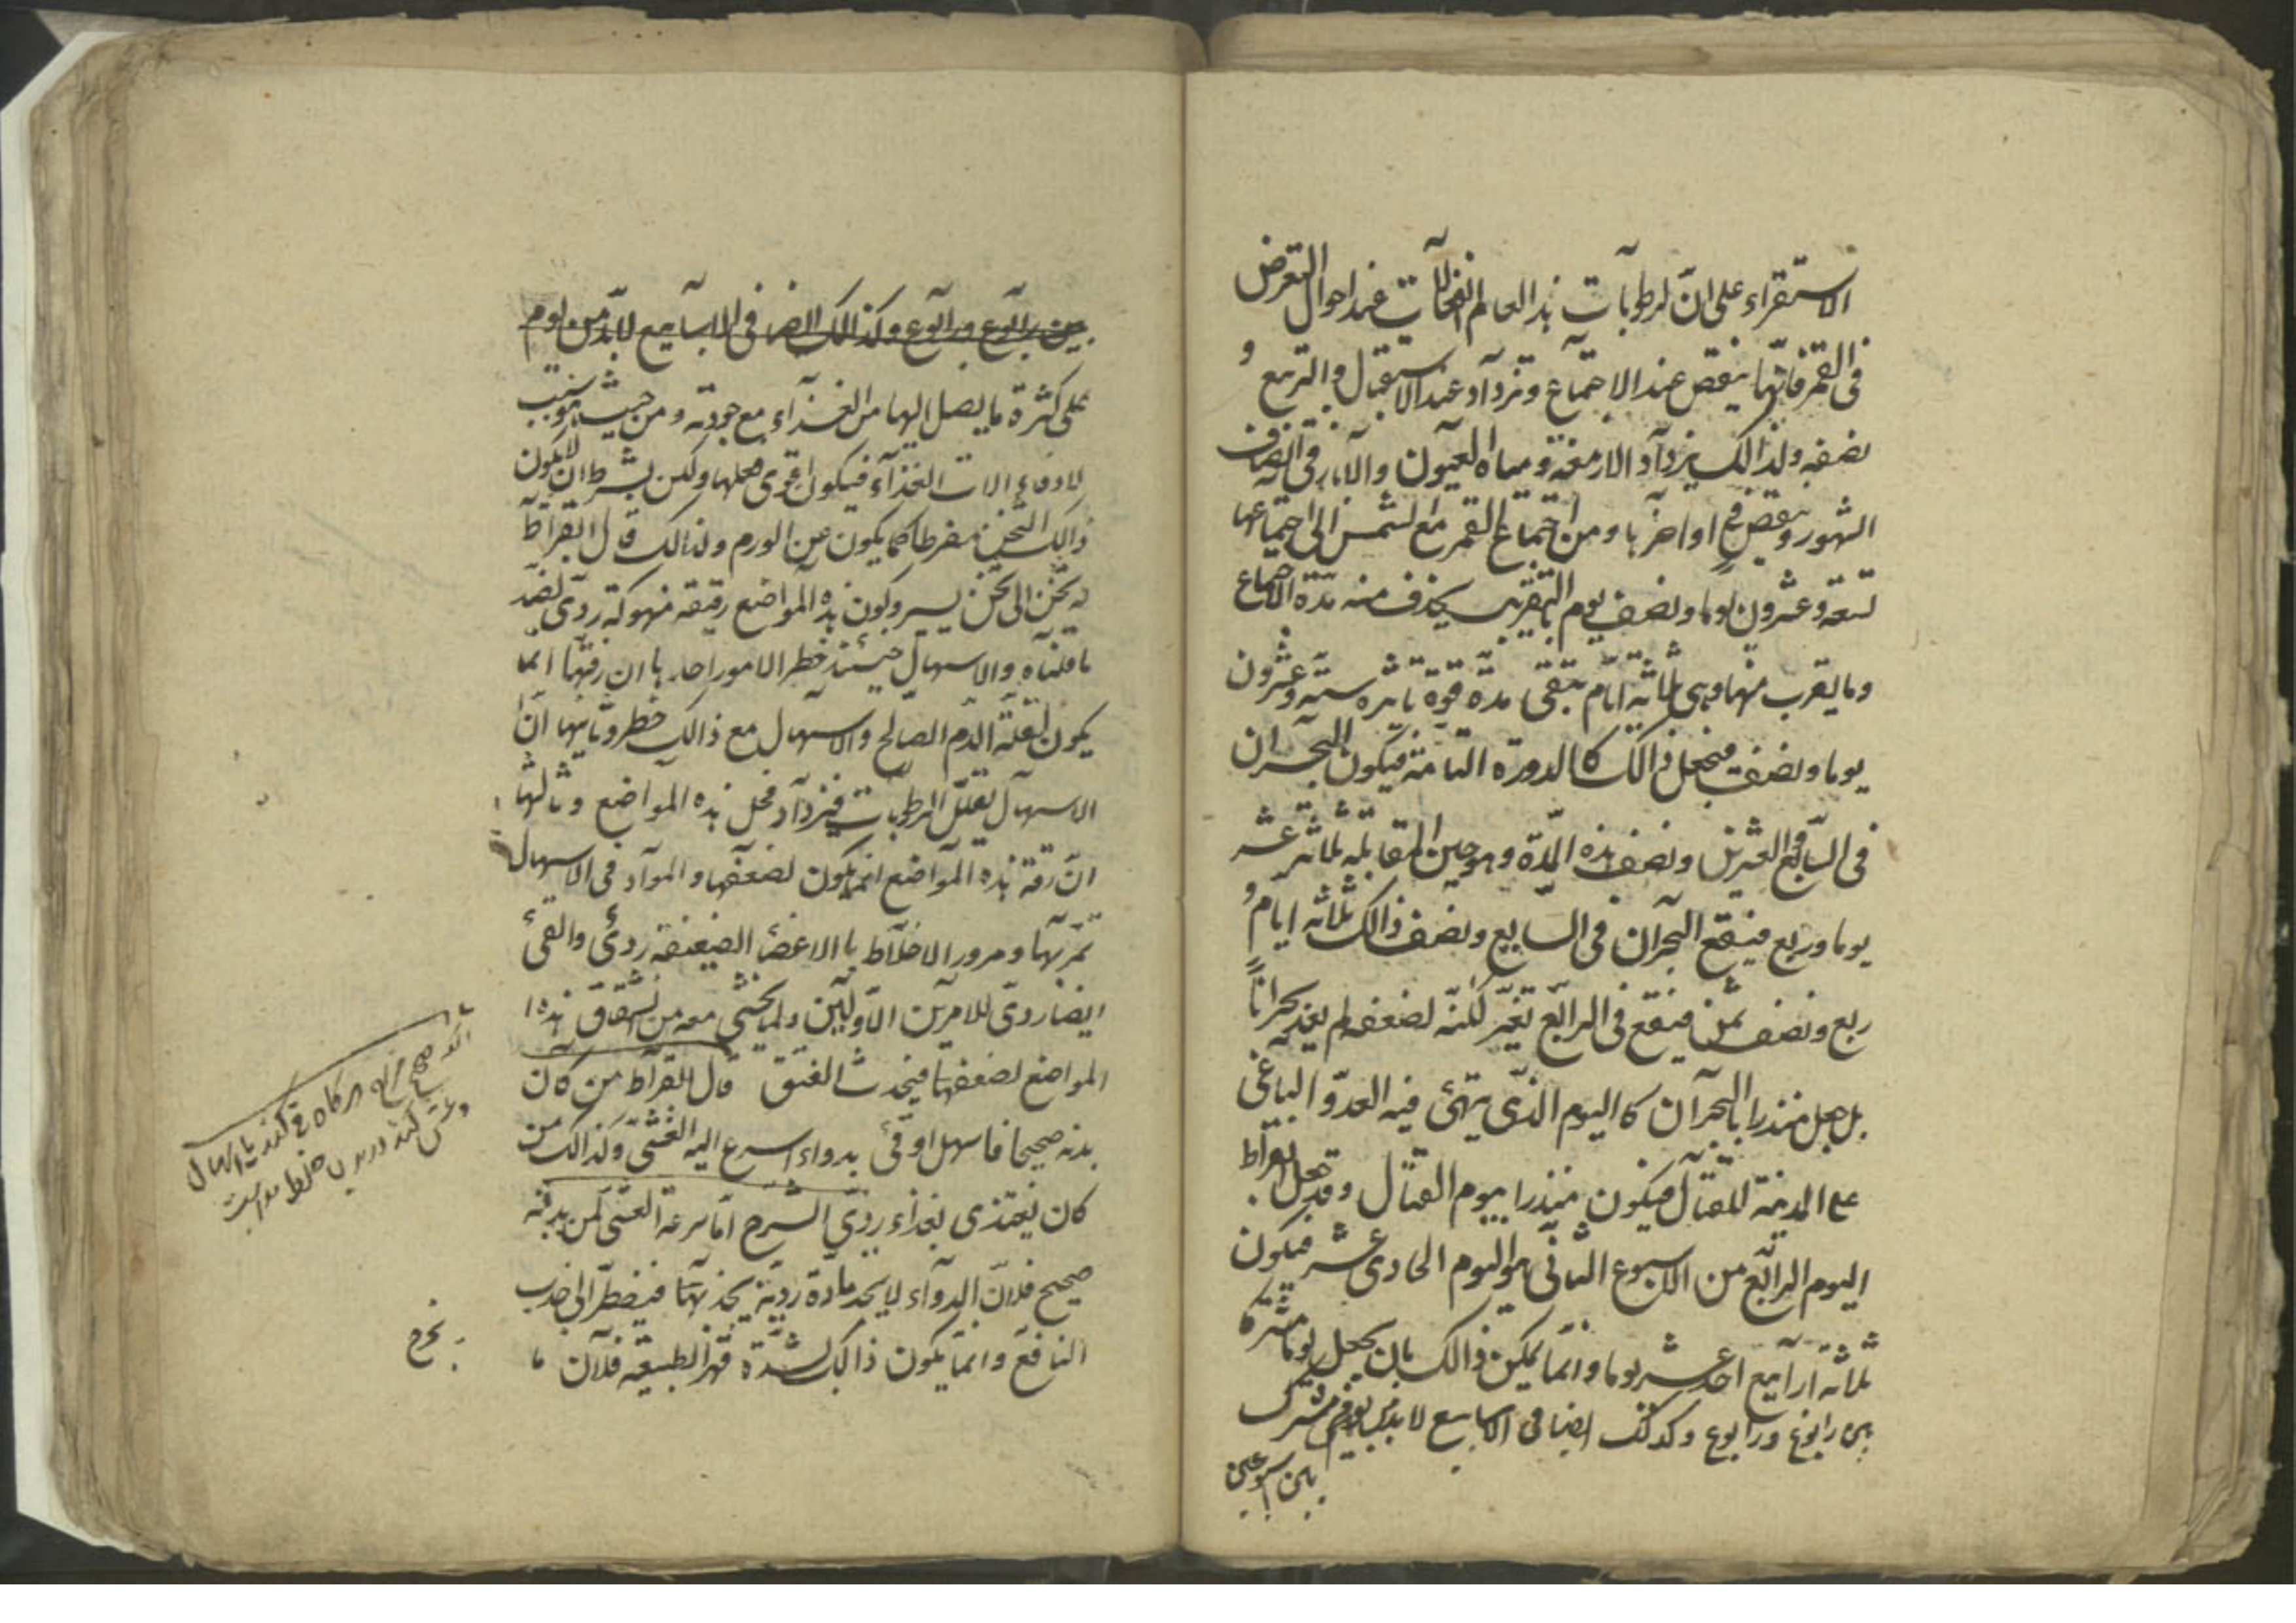 الاستقراء على ان لرطوبات هذا العالم انفعالات عند احوال التعرض
فى القمر فانها ينقص عند الاجتماع وتزداد عند الاستقبال والتربيع و
نصفه ولذالك يزداد الادمغة ومياه العيون والابار فى انصاف
الشهور وينقص فى اواخرها ومن اجتماع القمر مع الشمس الى اجتماعها
تسعة وعشرون يوما ونصف يوم بالتقريب يحذف منه مدة الاجتماع
وما يقرب منها وهى ثلاثة ايام تبقى مدة قوة تاثيره ستة وعشرون
يوما ونصف فيجعل ذالك كالدورة التامة فيكون البحران
فى السابع العشرين ونصف هذه المدة وهو حين المقابلة ثلاثة عشر
يوما وربع فيقع البحران فى السابع ونصف ذالك ثلاثة ايام و
ربع ونصف ثمن فيقع فى الرابع تغير لكنه لضعفه لم يعد بحرانا
بل جعل منذرا بالبحران كاليوم الذى يتهئ فيه العدو الباغى
على المدينة للقتال فيكون منذرا بيوم القتال وقد جعل بقراط
اليوم الرابع من الاسبوع الثانى هو اليوم الحادى عشر فيكون
ثلاثة ارابيع احد عشر يوما وانما يمكن ذالك بان يجعل يوما مشتركا
بين رابوع ورابوع وكذلك ايضا فى الاسابيع لا بد من يوم مشترك
بين اسبوعين
بين رابوع ورابوع وكذالك ايضا فى الاسابيع لابد من يوم
على كثرة ما يصل اليها من الغذاء مع جودته ومن حيث هو سبب
لادفاء الات الغذاء فيكون اقوى فعلها ولكن بشرط ان لايكون
ذالك الثخن مفرطا كما يكون عن الورم ولذالك قال ابقراط
له ثخن الى ثخن يسير وكون هذه المواضع رقيقة منهوكة ردى لضد
ما قلناه والاسهال حينئذ خطر لامور احدها ان رقتها انما
يكون لقلة الدم الصالح والاسهال مع ذالك خطر وثانيها ان
الاسهال يقلل الرطوبات فيزداد قحل هذه المواضع وثالثها
ان رقة هذه المواضع انما يكون لضعفها والمواد فى الاسهال
تمر بها ومرور الاخلاط بالاعضا الضعيفة ردئ والقئ
ايضا ردى للامرين الاولين ولما يخشى معه من انشقاق هذه
المواضع لضعفها فيحدث الفتق قال بقراط من كان
بدنه صحيحا فاسهل او قئ بدواء اسرع اليه الغشى وكذالك من
كان يغتذى بغذاء ردى الشرح اما سرعة الغشى لمن بدنه
صحيح فلان الدواء لايجد مادة ردية يجذبها فيضطر الى جذب
النافع وانما يكون ذالك لشدة قهر الطبيعة فلان